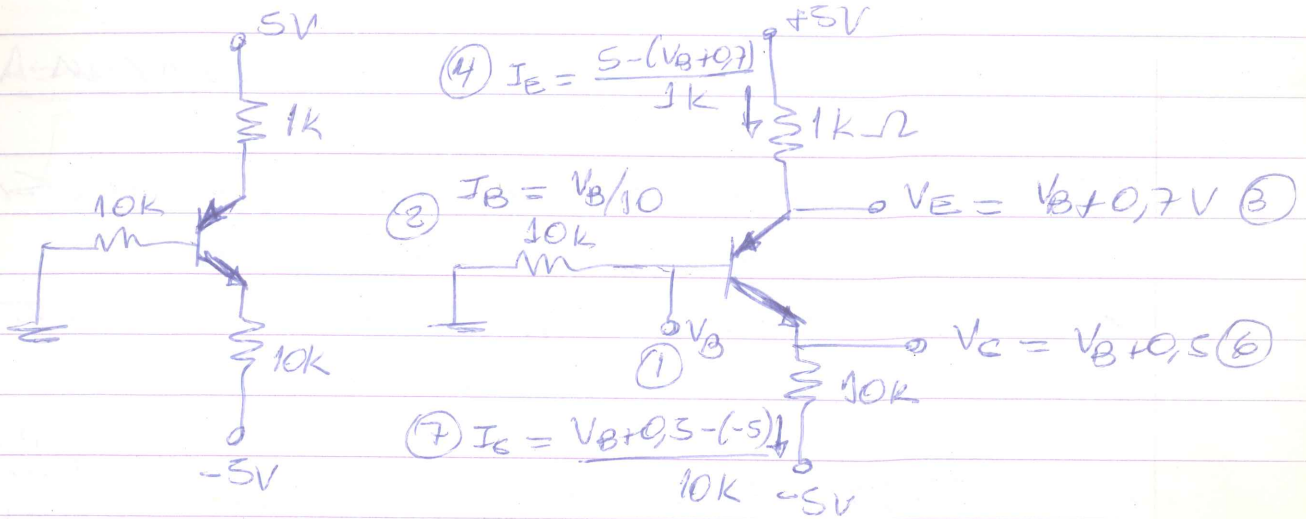 5V
1k
10k
10k
-5V
+5V
④ I_E = 5-(V_B+0,7) / 1k
1k Ω
② I_B = V_B/10
10k
V_E = V_B+0,7V ③
V_B
①
V_C = V_B+0,5 ⑥
10k
⑦ I_C = V_B+0,5-(-5) / 10k
-5V